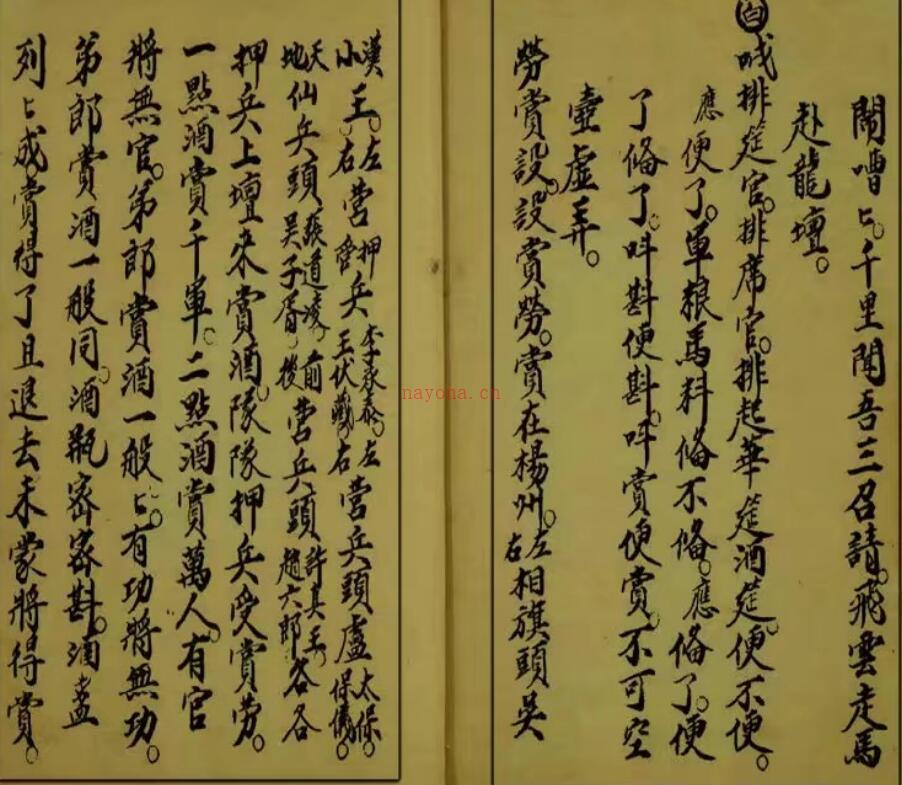 鬧嘈〻。千里聞吾三召請。飛雲走馬
赴龍壇。
白 喊排筵官。排席官。排起華筵酒筵。便不便。
應便了。軍粮馬料俻不俻。應俻了。便
了俻了。吽斟便斟。吽賞便賞。不可空
壷虛弄。
勞賞設。設賞勞。賞在楊州。左右相旗頭吳
漢小王。左右營押兵李承泰。王伏藏。左右營兵頭盧太保。保儀。
天地仙兵頭張道凌。吳子胥。前後營兵頭許真王。趙六郎。各各
押兵上壇來賞酒。隊隊押兵受賞勞。
一點酒賞千軍。二點酒賞萬人。有官
將無官。弟郎賞酒一般〻。有功將無功。
弟郎賞酒一般同。酒瓶密密斟。酒盞
列〻成。賞得了且退去未蒙將得賞。
nayona.cn